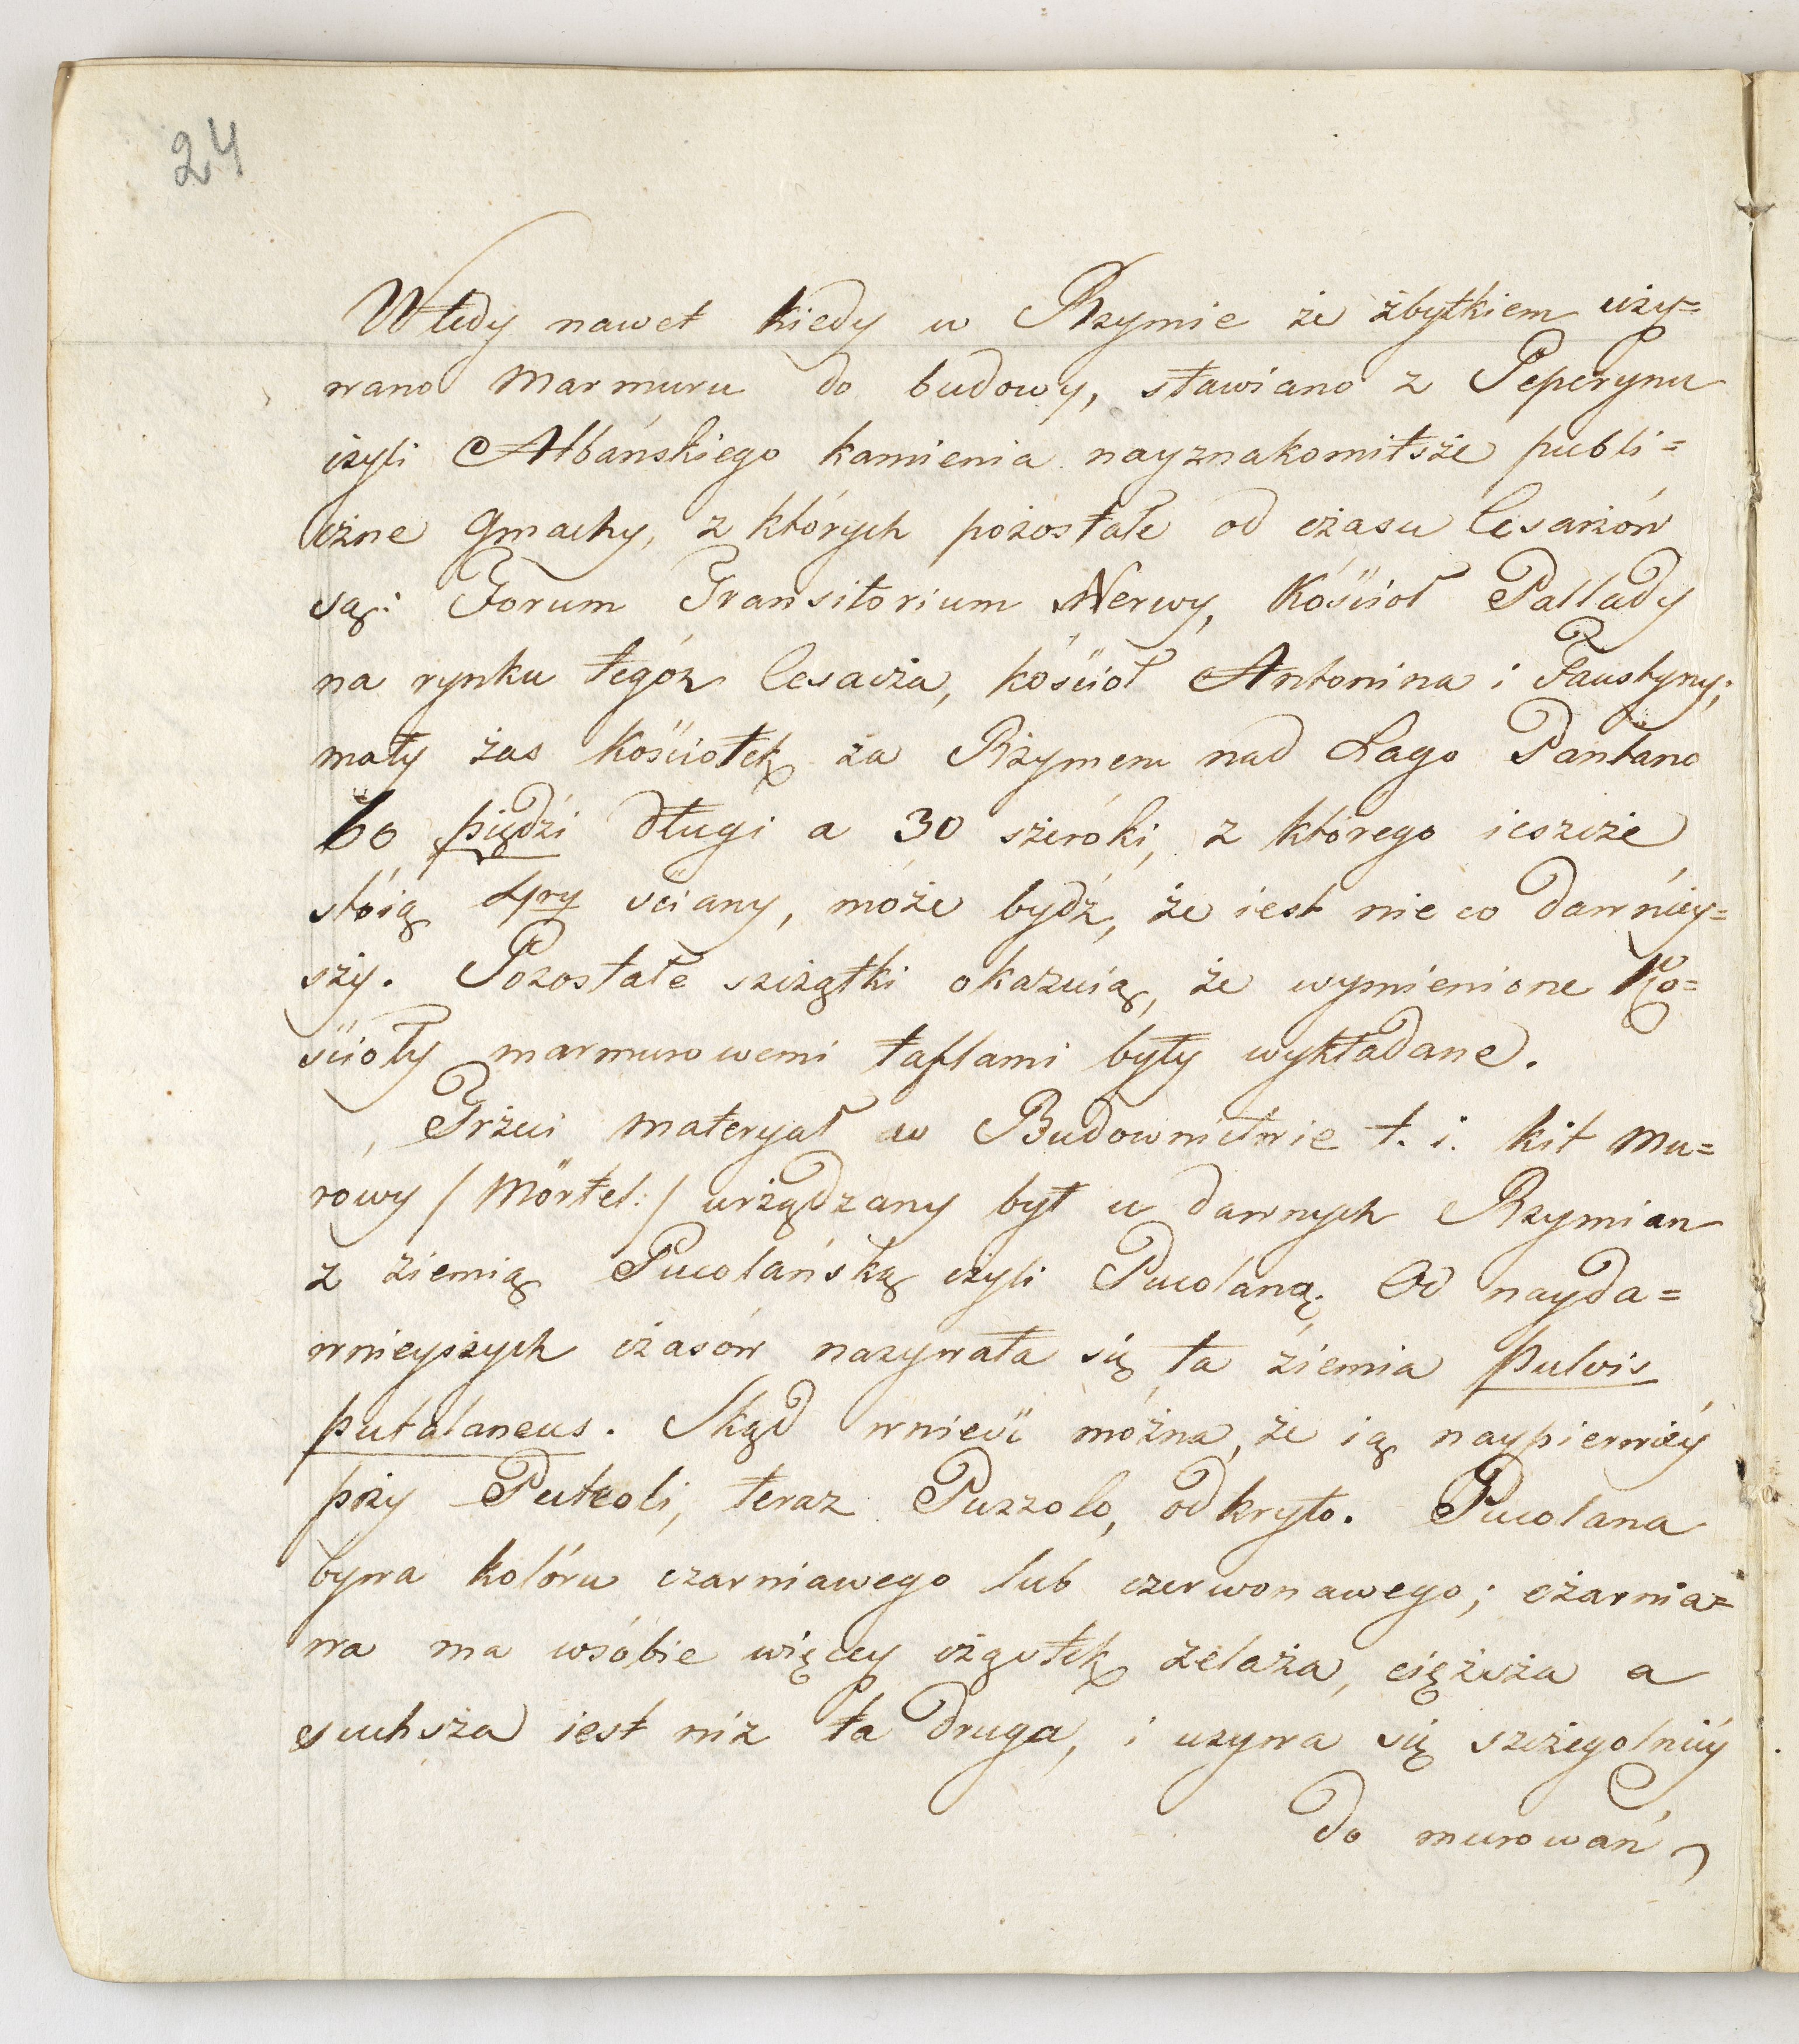 24
Wtedy nawet kiedy w Rzymie ze zbytkiem uży=
wano Marmuru do budowy, stawiano z Peperynu
czyli Albańskiego kamienia nayznakomitsze publi=
czne Gmachy, z których pozostałe od czasu Cesarzów
są: Forum Transitorium Nerwy, Kościoł Pallady
na rynku tegóż Cesarza, kościoł Antonina i Faustyny;
mały zas Kościołek za Rzymem nad Lago Pantano
60 piędzi długi a 30 szeróki, z którego ieszcze
stóią 4ry sciany, móże bydź, że iest nie co dawniey=
szy. Pozostałe szczątki okazuią, że wymienione Ko=
ścioły marmurowemi taflami były wykładane.
Trzeci materyał w Budownictwie t. i. kit mu=
rówy /Mörtel:/ urządzany był u dawnych Rzymian
z ziemią Pucolańską czyli Pucolaną. Od nayda=
wnieyszych czasów nazywała się ta ziemia pulvis
putalaneus. Skąd wnieść można, że ią naypierwéy
przy Puteoli, teraz Puzzolo, odkryto. Pucolana
bywa kolóru czarniawego lub czerwonawego; czarnia=
wa ma wsóbie więcey cząstek żelaza, cięższa a
suchsza iest niż ta druga, i uzywa się szczegolniéy
do murowań